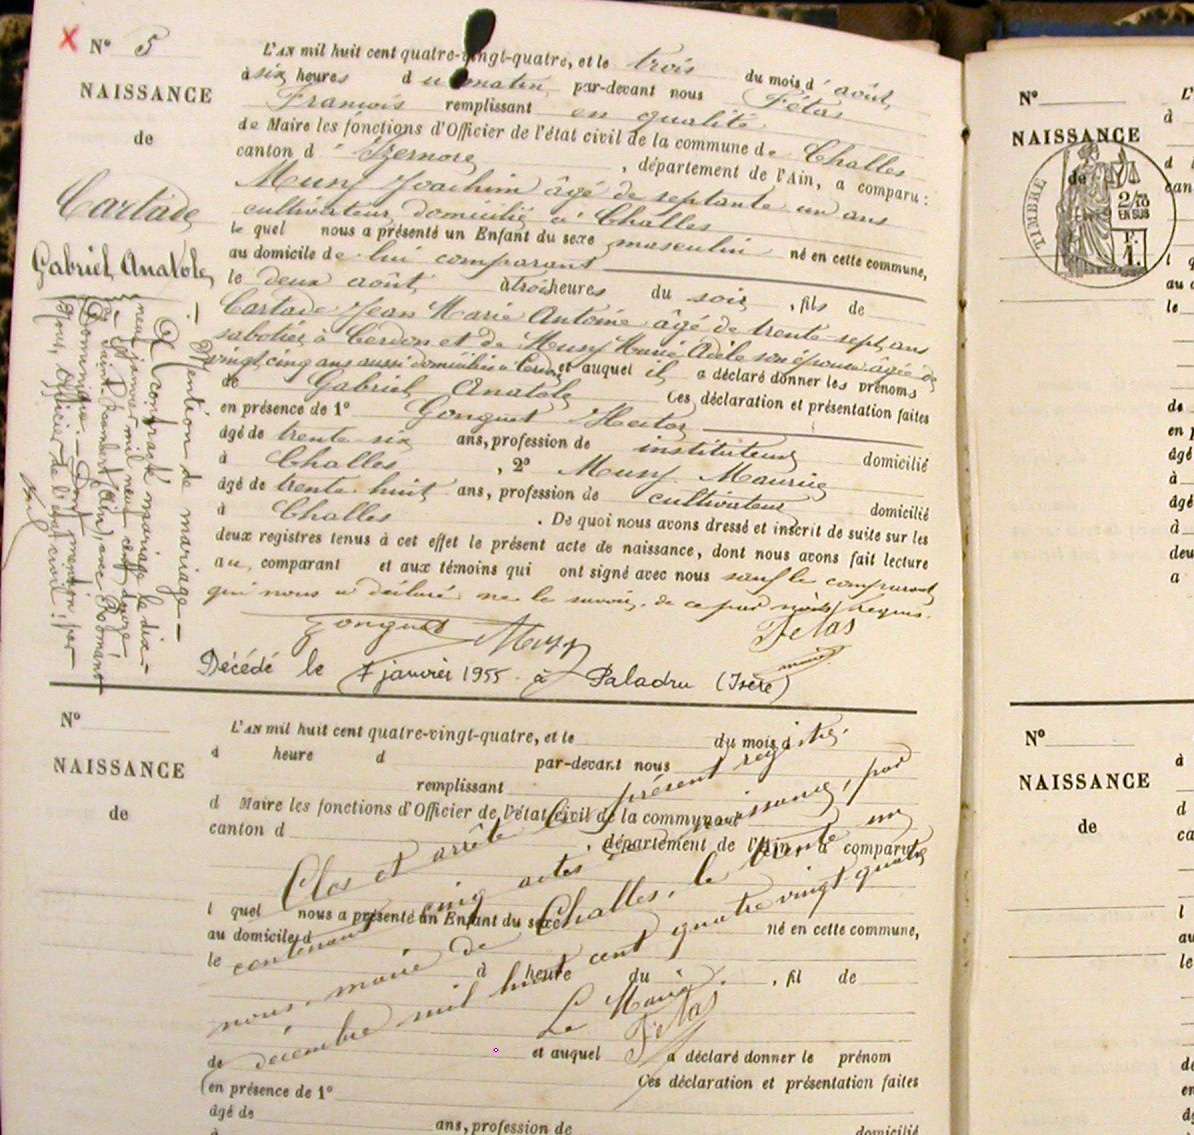 N° 5
NAISSANCE
de
Cartade
Gabriel Anatole
— Mention de mariage —
A contracté mariage le dix-
neuf janvier mil neuf cent douze
à Saint Rambert (Ain) avec Romans
Dominique. — Dont mention par
Nous, Officier de l'état civil.
L'AN mil huit cent quatre-vingt-quatre, et le trois du mois d'août,
à six heures du matin par-devant nous Fétas
François remplissant en qualité
de Maire les fonctions d'Officier de l'état civil de la commune de Challes
canton d'Izernore, département de l'Ain, a comparu :
Muny Joachim âgé de septante un ans
cultivateur domicilié à Challes
lequel nous a présenté un Enfant du sexe masculin né en cette commune,
au domicile de lui comparant
le deux août à trois heures du soir, fils de
Cartade Jean Marie Antoine âgé de trente-sept ans
sabotier à Cerdon et de Muny Marie Adèle son épouse âgée de
vingt cinq ans aussi domiciliée à Cerdon et auquel il a déclaré donner les prénoms
de Gabriel Anatole Ces déclaration et présentation faites
en présence de 1° Gonguet Hector
âgé de trente-six ans, profession de instituteur domicilié
à Challes, 2° Muny Maurice
âgé de trente huit ans, profession de cultivateur domicilié
à Challes. De quoi nous avons dressé et inscrit de suite sur les
deux registres tenus à cet effet le présent acte de naissance, dont nous avons fait lecture
au comparant et aux témoins qui ont signé avec nous sauf le comparant
qui nous a déclaré ne le savoir, de ce par nous requis.
Gonguet Muny Fétas
maire
Décédé le 7 janvier 1955 à Paladru (Isère)
N°
NAISSANCE
de
L'AN mil huit cent quatre-vingt-quatre, et le du mois d
à heure d par-devant nous
remplissant
d Maire les fonctions d'Officier de l'état civil de la commune
canton d , département de l'Ain, a comparu
l quel nous a présenté un Enfant du sexe né en cette commune,
au domicile d
le à heure du , fil de
et auquel a déclaré donner le prénom
de Ces déclaration et présentation faites
en présence de 1°
âgé de ans, profession de domicilié
à
Clos et arrêté le présent registre,
contenant cinq actes de naissance, par
nous, maire de Challes, le trente un
décembre mil huit cent quatre vingt quatre
Le Maire
Fétas
N°
NAISSANCE
de
TIMBRE
2/10
EN SUS
F.
1.
N°
NAISSANCE
de